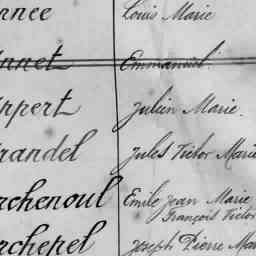 nnee Louis Marie
nnet Emmanuel.
ppert Julien Marie.
randel Jules Victor Marie
rchenoul Emile Jean Marie
François Victor
rchepel Joseph Pierre Mar